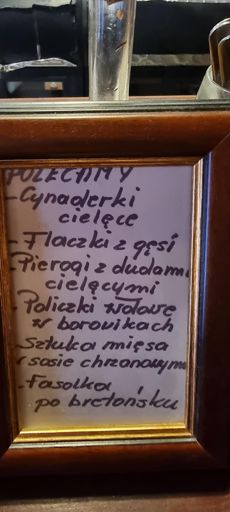 POLECAMY
- Cynaderki
cielęce
- Flaczki z gęsi
- Pierogi z dudkami
cielęcymi
- Policzki wołowe
w borowikach
- Sztuka mięsa
w sosie chrzanowym
- Fasolka
po bretońsku